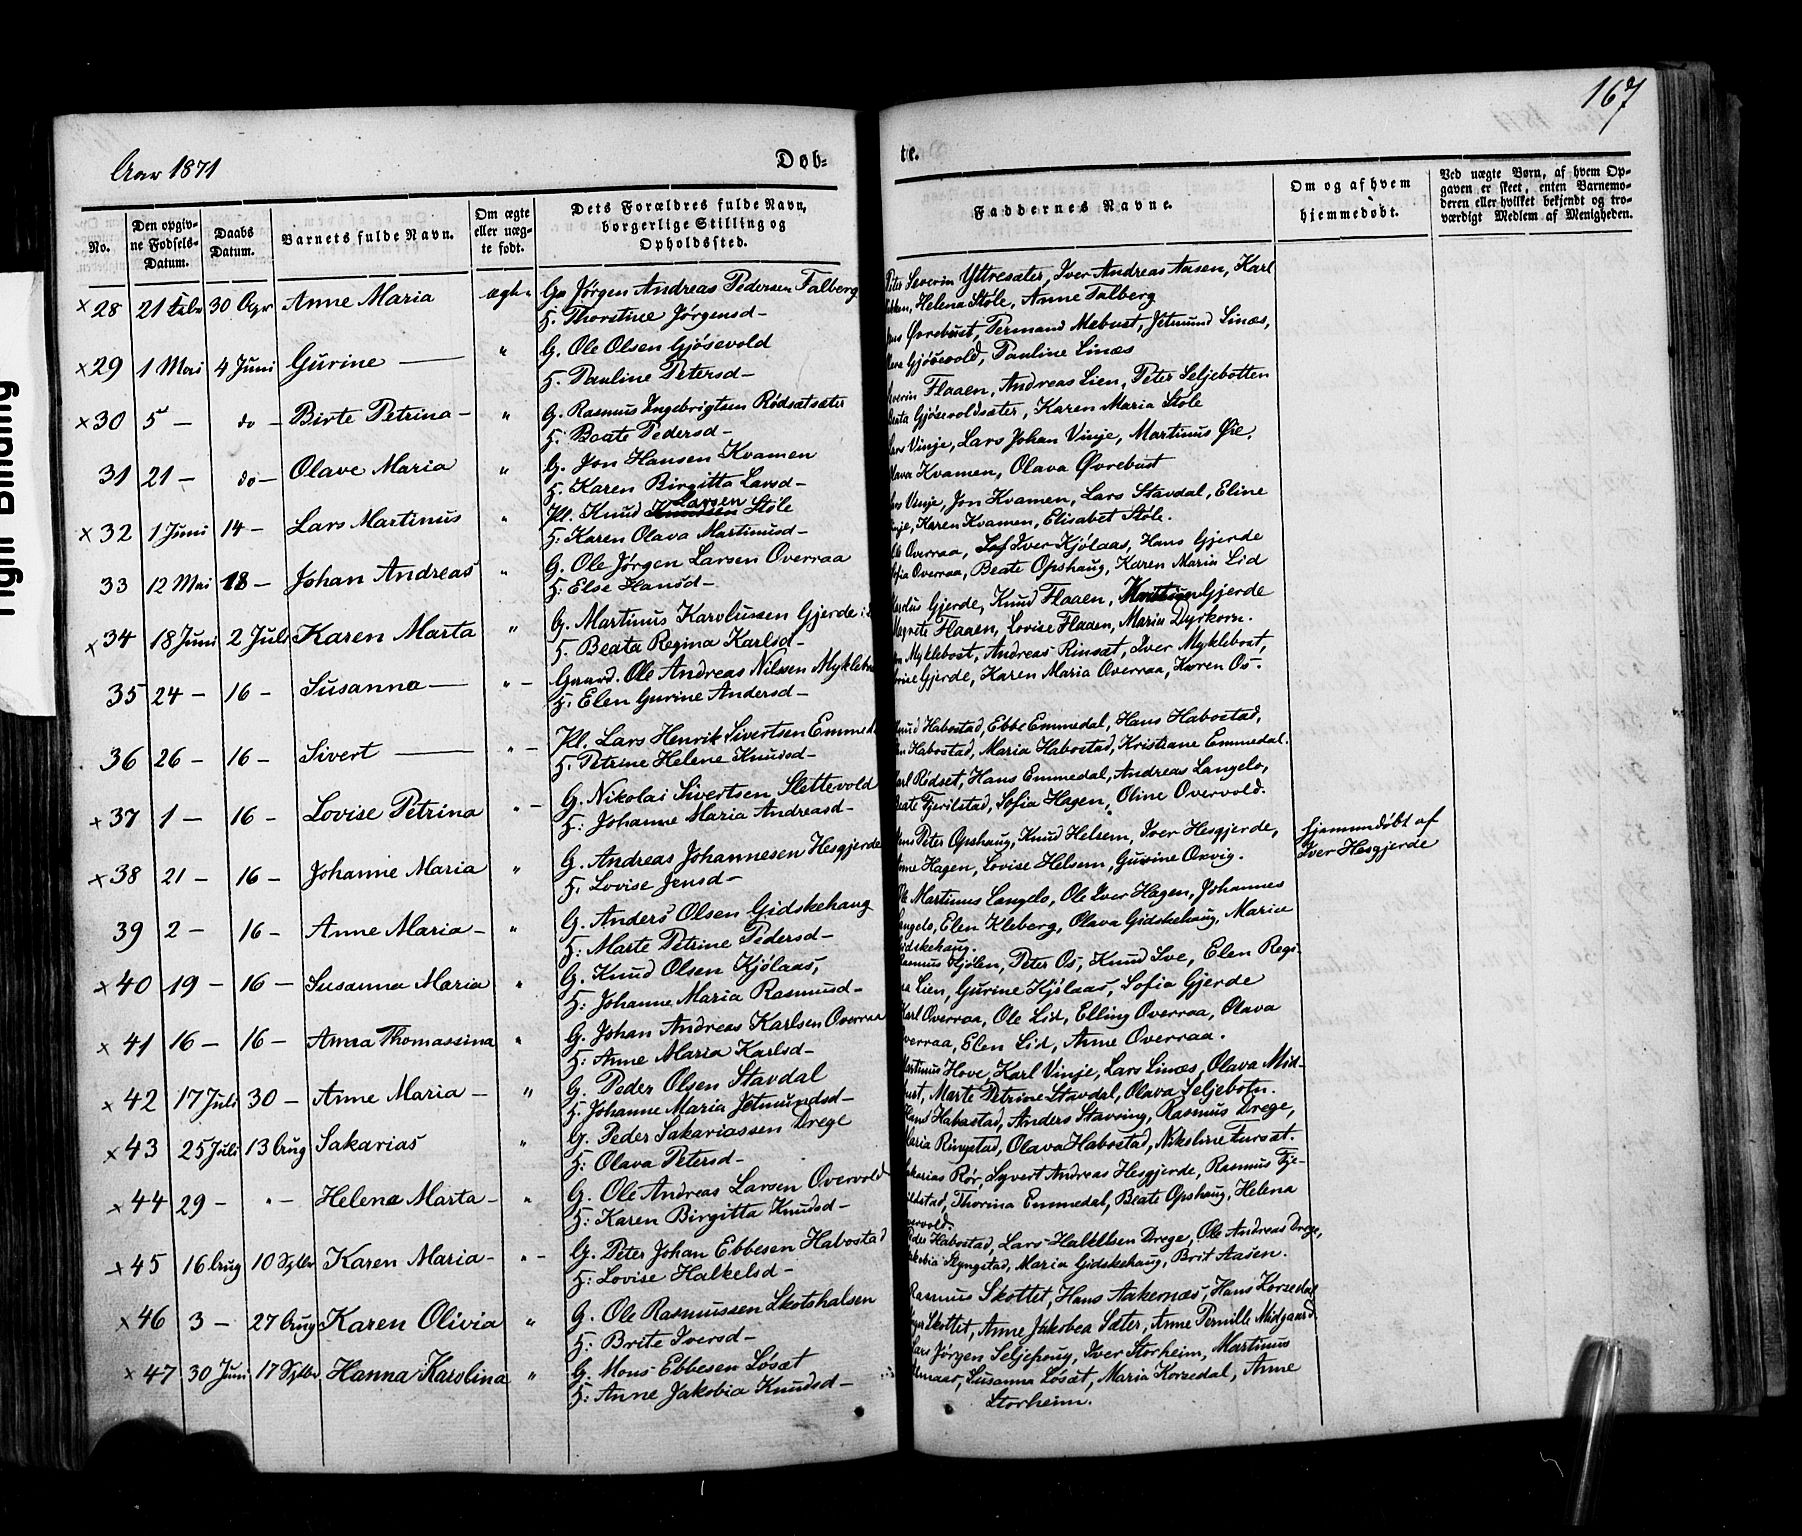 167
Aar 1871
Døb-
te.
No.
Den opgiv-
ne Fødsels-
Datum.
Daabs
Datum.
Barnets fulde Navn.
Om ægte
eller uæg-
te født.
Dets Forældres fulde Navn,
borgerlige Stilling og
Opholdssted.
Faddernes Navne.
Om og af hvem
hjemmedøbt.
Ved uægte Børn, af hvem Op-
gaven er skeet, enten Barnemo-
deren eller hvilket bekjendt og tro-
værdigt Medlem af Menigheden.
x 28 21 Febr 30 Apr Anne Maria ægte Gm Jørgen Andreas Pedersen Falberg
H. Thorstine Jørgensd-
Peter Severin Yttresæter, Iver Andreas Aasen, Karl
Helena Støle, Anne Falberg
x 29 1 Mai 4 Juni Gurine — " G. Ole Olsen Gjøsevold
H. Pauline Petersd-
Øvrebust, Permand Mebust, Jetmund Linæs,
Gjøsevold, Pauline Linæs
x 30 5 — do — Birte Petrina - " G. Rasmus Ingebrigtsen Rødsætsæter
H. Beate Pedersd-
Severin Flaaen, Andreas Lien, Peter Seljebotten
Beata Gjøsevoldsæter, Karen Maria Støle
31 21 — do — Olave Maria " G. Jon Hansen Kvamen
H. Karen Birgitta Larsd-
Lars Vinje, Lars Johan Vinje, Martinus Øie,
Olava Kvamen, Olava Øvrebust
x 32 1 Juni 14 - Lars Martinus " Pl. Knud Knudsen Larsen Støle
H. Karen Olava Martinusd-
Lars Vinje, Jon Kvamen, Lars Stavdal, Eline
Vinje, Karen Kvamen, Elisabet Støle.
33 12 Mai 18 - Johan Andreas " G. Ole Jørgen Larsen Overraa
H: Else Hansd-
Ole Overraa, Iver Kjølaas, Hans Gjerde
Sofia Overraa, Beate Opshaug, Karen Maria Lid
x 34 18 Juni 2 Juli Karen Marta " G. Martinus Karolussen Gjerde
H. Beata Regina Karlsd-
Karolus Gjerde, Knud Flaaen, Kristian Gjerde
Magrete Flaaen, Lovise Flaaen, Maria Dyrkorn.
35 24 - 16 - Susanna — " - Gaard. Ole Andreas Nilsen Myklebust
H: Elen Gurine Andersd-
Myklebost, Andreas Rinsæt, Iver Myklebost,
Lovise Gjerde, Karen Maria Overraa, Karen Os-
36 26 - 16 - Sivert — " - Pl. Lars Henrik Sivertsen Emmedal
H. Petrine Helene Knudsd-
Knud Habostad, Ebbe Emmedal, Hans Habostad,
Habostad, Maria Habostad, Kristiane Emmedal.
x 37 1 - 16 - Lovise Petrina " - G. Nikolai Sivertsen Slettevold
H: Johanne Maria Andreasd-
Karl Ridset, Hans Emmedal, Andreas Langelo,
Beate Fjerilstad, Sofia Hagen, Oline Overvold.
x 38 21 - 16 - Johanne Maria " G. Andreas Johannesen Hesgjerde
H. Lovise Jensd-
Jens Peter Opshaug, Knud Helsem, Iver Hesgjerde,
Anne Hagen, Lovise Helsem, Gurine Orvig.
Hjemmedøbt af
Iver Hesgjerde
39 2 - 16 - Anne Maria - " G. Anders Olsen Gidskehaug
H: Marte Petrine Pedersd-
Ole Martinus Langelo, Ole Iver Hagen, Johannes
Langelo, Elen Kleberg, Olava Gidskehaug, Maria
Gidskehaug.
x 40 19 - 16 - Susanna Maria " G. Knud Olsen Kjølaas,
H: Johanne Maria Rasmusd-
Rasmus Hjølen, Peter Os, Knud Ive, Elen Regi-
na Lien, Gurine Kjølaas, Sofia Gjerde
x 41 16 - 16 - Anna Thomassina " G. Johan Andreas Karlsen Overraa
H: Anne Maria Karlsd-
Karl Overraa, Ole Lid, Elling Overraa, Olava
Overraa, Elen Lid, Anne Overraa.
x 42 17 Juli 30 - Anne Maria - " G. Peder Olsen Stavdal
H: Johanne Maria Jetmundsd-
Martinus Hove, Karl Vinje, Lars Linæs, Olava Mid-
bust, Marte Petrine Stavdal, Olava Seljebotn.
x 43 25 Juli 13 Aug Sakarias " G. Peder Sakariassen Drege
H: Olava Petersd-
Hans Habostad, Anders Stavsing, Rasmus Drege,
Maria Ringstad, Olava Habostad, Nikoline Fursæt.
x 44 29 - " - Helena Marta - " G. Ole Andreas Larsen Overvold
H: Karen Birgitta Knudsd-
Sakarias Rør, Syvert Andreas Hesgjerde, Rasmus Fje-
rildstad, Thorina Emmedal, Beate Opshaug, Helena
Overvold.
x 45 16 Aug 10 Sptbr Karen Maria - " - G. Peter Johan Ebbesen Habostad
H: Lovise Halkelsd-
Peder Habostad, Lars Halkelsen Drege, Ole Andreas Drege,
Jakobia Skyngstad, Maria Gidskehaug, Brit Aasen.
x 46 3 - 27 Aug Karen Olivia " G. Ole Rasmussen Skotshalsen
H: Brite Iversd-
Rasmus Skottet, Hans Aakernæs, Hans Korsedal
Skottet, Anne Jakobea Sæter, Anne Pernille Midgaard
x 47 30 Juni 17 Sptbr Hanna Karolina " G. Mons Ebbesen Løsæt
H: Anne Jakobia Knudsd-
Lars Jørgen Seljehoug, Iver Storheim, Martinus
Susanna Løsæt, Maria Korsedal, Anne
Storheim.
Tight Binding